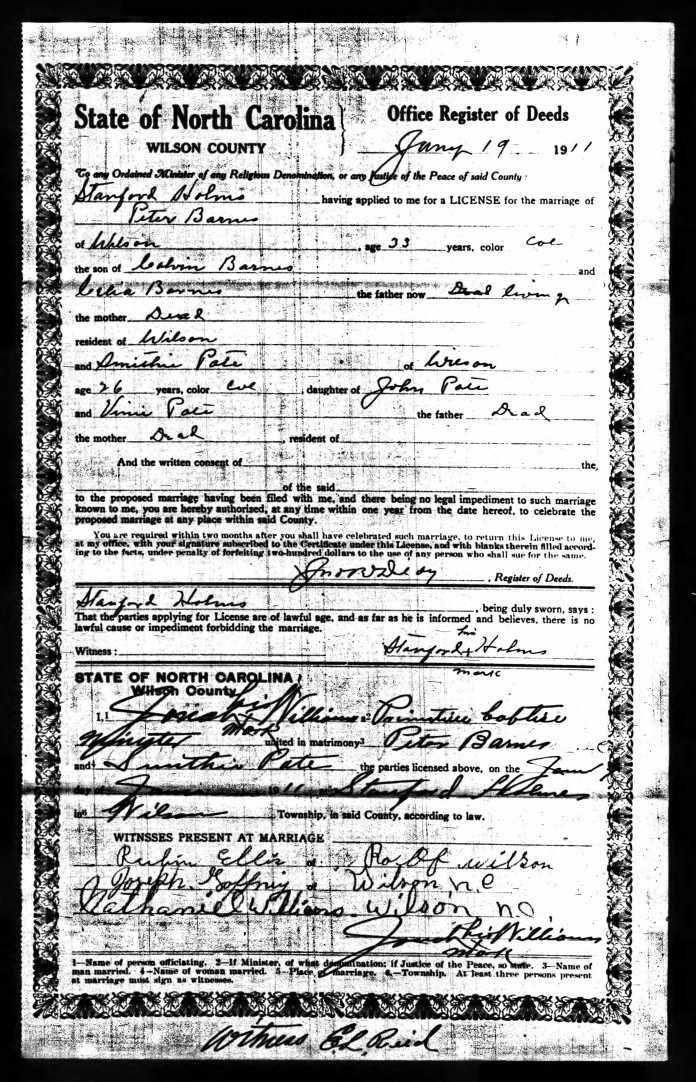 State of North Carolina
WILSON COUNTY
Office Register of Deeds
Jany 19 1911
To any Ordained Minister of any Religious Denomination, or any Justice of the Peace of said County:
Stanford Holms having applied to me for a LICENSE for the marriage of
Peter Barnes
of Wilson, age 33 years, color Col
the son of Calvin Barnes and
Celia Barnes the father now Dead living
the mother Dead
resident of Wilson
and Smithie Pate of Wilson
age 26 years, color Col, daughter of John Pate
and Vinie Pate the father Dead
the mother Dead, resident of
And the written consent of the,
of the said
to the proposed marriage having been filed with me, and there being no legal impediment to such marriage
known to me, you are hereby authorized, at any time within one year from the date hereof, to celebrate the
proposed marriage at any place within said County.
You are required within two months after you shall have celebrated such marriage, to return this License to me,
at my office, with your signature subscribed to the Certificate under this License, and with blanks therein filled accord-
ing to the facts, under penalty of forfeiting two-hundred dollars to the use of any person who shall sue for the same.
, Register of Deeds.
Stanford Holms, being duly sworn, says:
That the parties applying for License are of lawful age, and as far as he is informed and believes, there is no
lawful cause or impediment forbidding the marriage.
his
Witness: Stanford x Holms
mark
STATE OF NORTH CAROLINA
Wilson County
I,1 Josiah his Williams Primitive baptise
mark
minister united in matrimony3 Peter Barnes
and4 Smithie Pate the parties licensed above, on the
day 1911 Stanford Holmes
in6 Wilson Township, in said County, according to law.
WITNSSES PRESENT AT MARRIAGE
Rubin Ellis of Ro Of wilson
Joseph of Wilson n.c
Nathaniel Williams Wilson n.c
his Williams
mark
1—Name of person officiating. 2—If Minister, of what denomination; if Justice of the Peace, so state. 3—Name of
man married. 4—Name of woman married. 5—Place of marriage. 6—Township. At least three persons present
at marriage must sign as witnesses.
Witness E.L. Reid